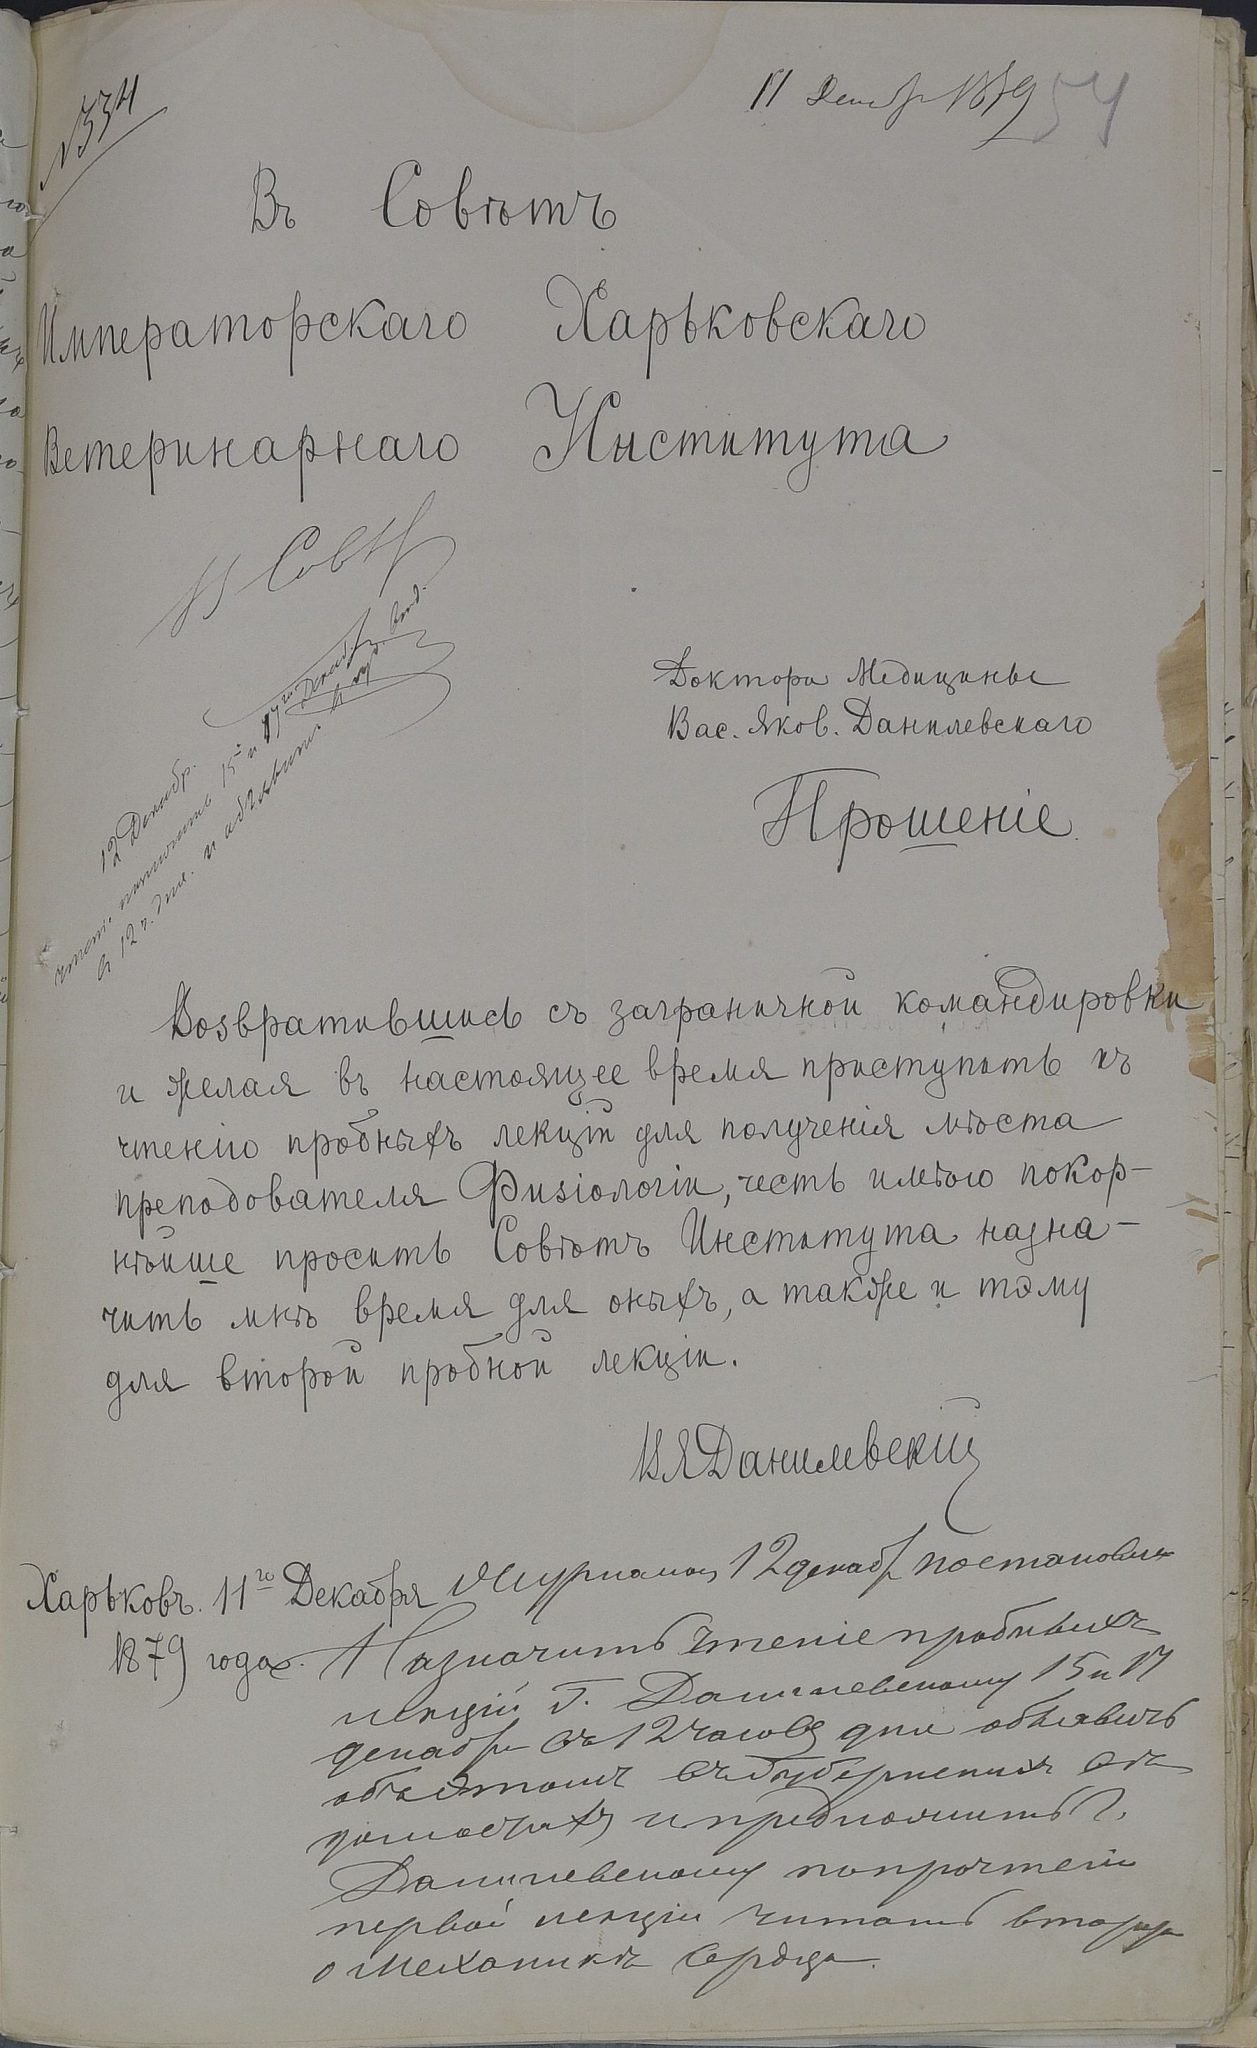 №334
11 Декабр 1879
54
Въ Совѣтъ
Императорскаго Харьковскаго
Ветеринарнаго Института
Въ Совѣт
12 Декабр.
чтеніе назначить 15 и 17го Декабр
въ 12 ч. дня. и объявить
Доктора Медицины
Вас. Яков. Данилевскаго
Прошеніе
Возвратившись съ заграничной командировки
и желая въ настоящее время приступить къ
чтенію пробныхъ лекцій для полученія мѣста
преподователя Физіологіи, честь имѣю покор-
нѣйше просить Совѣтъ Института назна-
чить мнѣ время для оныхъ, а также и тэму
для второй пробной лекціи.
ВЯДанилевскій
Харьковъ. 11го Декабря
1879 года.
Журналом 12 декабр постановил
Назначить чтеніе пробныхъ
лекцій Г. Данилевскому 15 и 17
декабр съ 12 часовъ дня объявить
объ этомъ въ Губернскихъ вѣ
домостяхъ и предложить Г.
Данилевскому по прочтеніи
первой лекціи читать вторую
о механикѣ сердца.